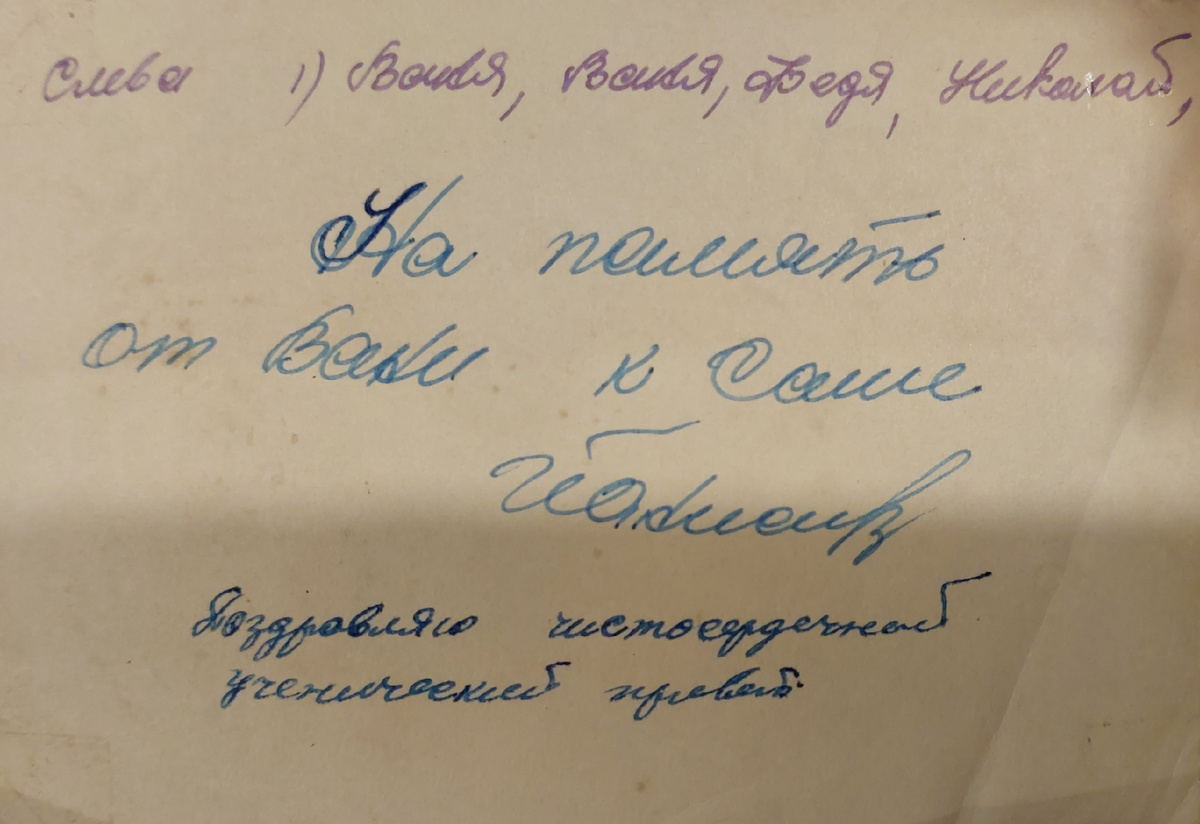 Слева 1) Ваня, Ваня, Федя, Николай,
На память
от Вани к Саше
Поздравляю чистосердечный
ученический привет